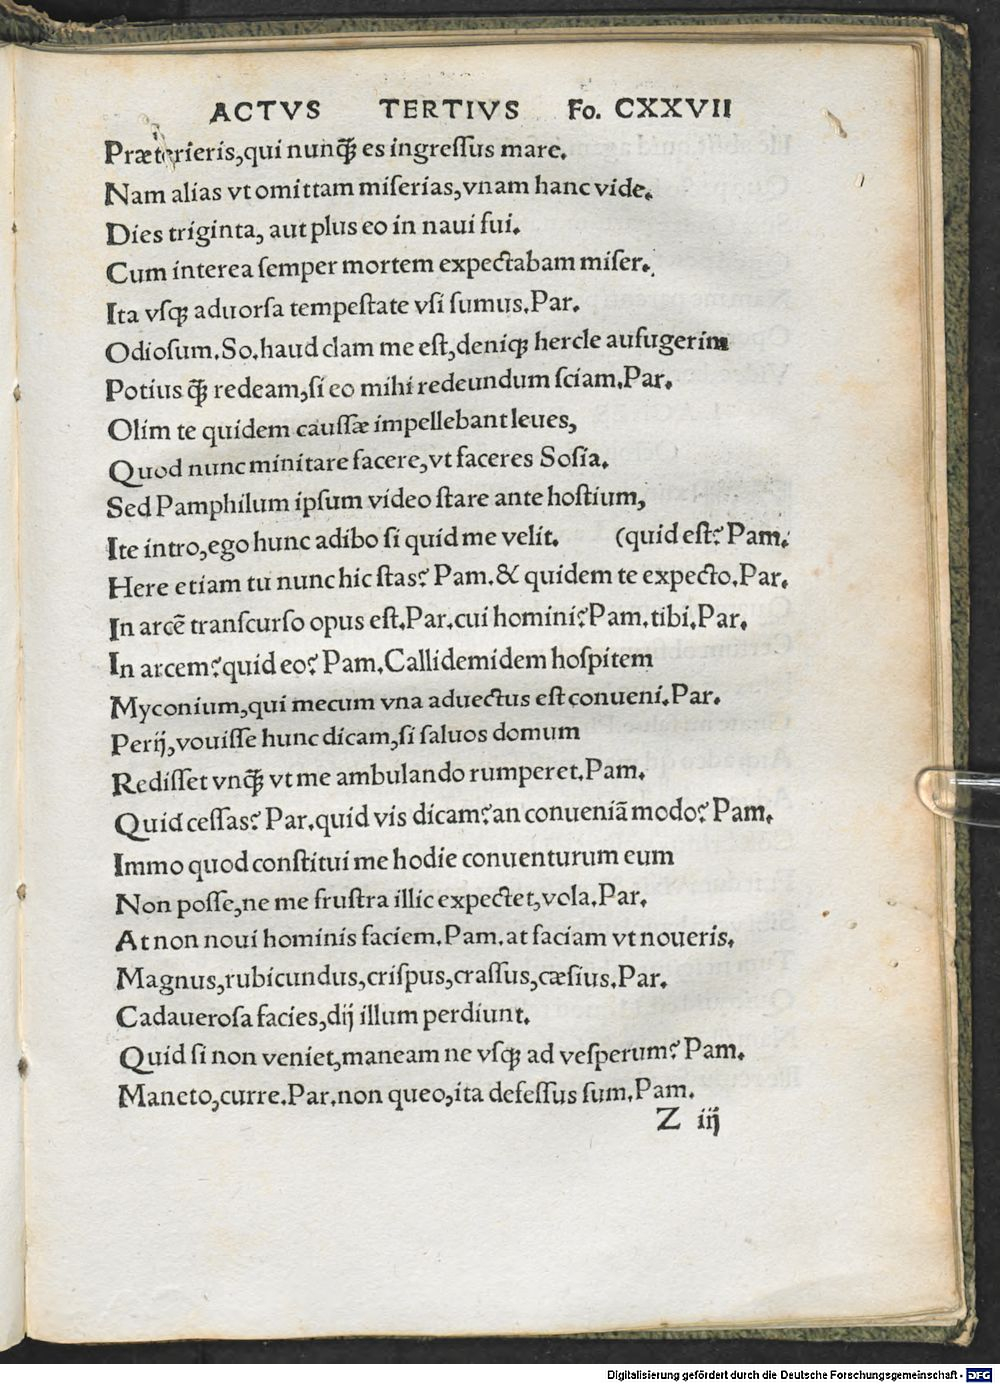 ACTVS TERTIVS Fo. CXXVII
Præterieris,qui nunq̃ꝫ es ingreſſus mare.
Nam alias vt omittam miſerias,vnam hanc vide.
Dies triginta, aut plus eo in naui fui.
Cum interea ſemper mortem expectabam miſer.
Ita vſqꝫ aduorſa tempeſtate vſi ſumus.Par.
Odioſum.So.haud clam me eſt,deniqꝫ hercle aufugerim
Potius q̃ꝫ redeam,ſi eo mihi redeundum ſciam.Par.
Olim te quidem cauſſæ impellebant leues,
Quod nunc minitare facere,vt faceres Soſia.
Sed Pamphilum ipſum video ſtare ante hoſtium,
Ite intro,ego hunc adibo ſi quid me velit. (quid eſt? Pam.
Here etiam tu nunc hic ſtas? Pam.& quidem te expecto.Par.
In arcē tranſcurſo opus eſt.Par.cui homini?Pam.tibi.Par.
In arcem?quid eo? Pam.Callidemidem hoſpitem
Myconium,qui mecum vna aduectus eſt conueni.Par.
Perij,vouiſſe hunc dicam,ſi ſaluos domum
Rediſſet vnq̃ꝫ vt me ambulando rumperet.Pam.
Quid ceſſas? Par.quid vis dicam?an conueniã modo? Pam.
Immo quod conſtitui me hodie conuenturum eum
Non poſſe,ne me fruſtra illic expectet,vola.Par.
At non noui hominis faciem.Pam.at faciam vt noueris.
Magnus,rubicundus,criſpus,craſſus,cæſius.Par.
Cadaueroſa facies,dij illum perdiunt.
Quid ſi non veniet,maneam ne vſqꝫ ad veſperum? Pam.
Maneto,curre.Par.non queo,ita defeſſus ſum.Pam.
Z iij
Digitalisierung gefördert durch die Deutsche Forschungsgemeinschaft - DFG